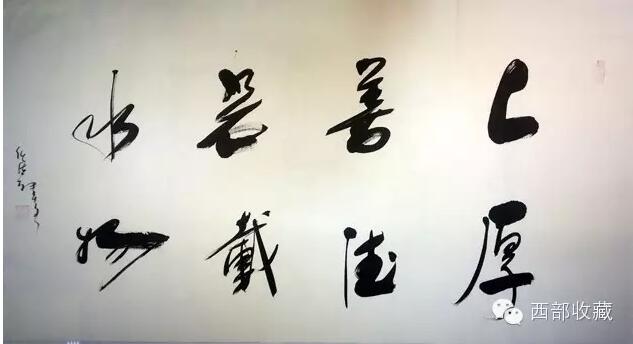 上善若水
厚德載物
西部收藏